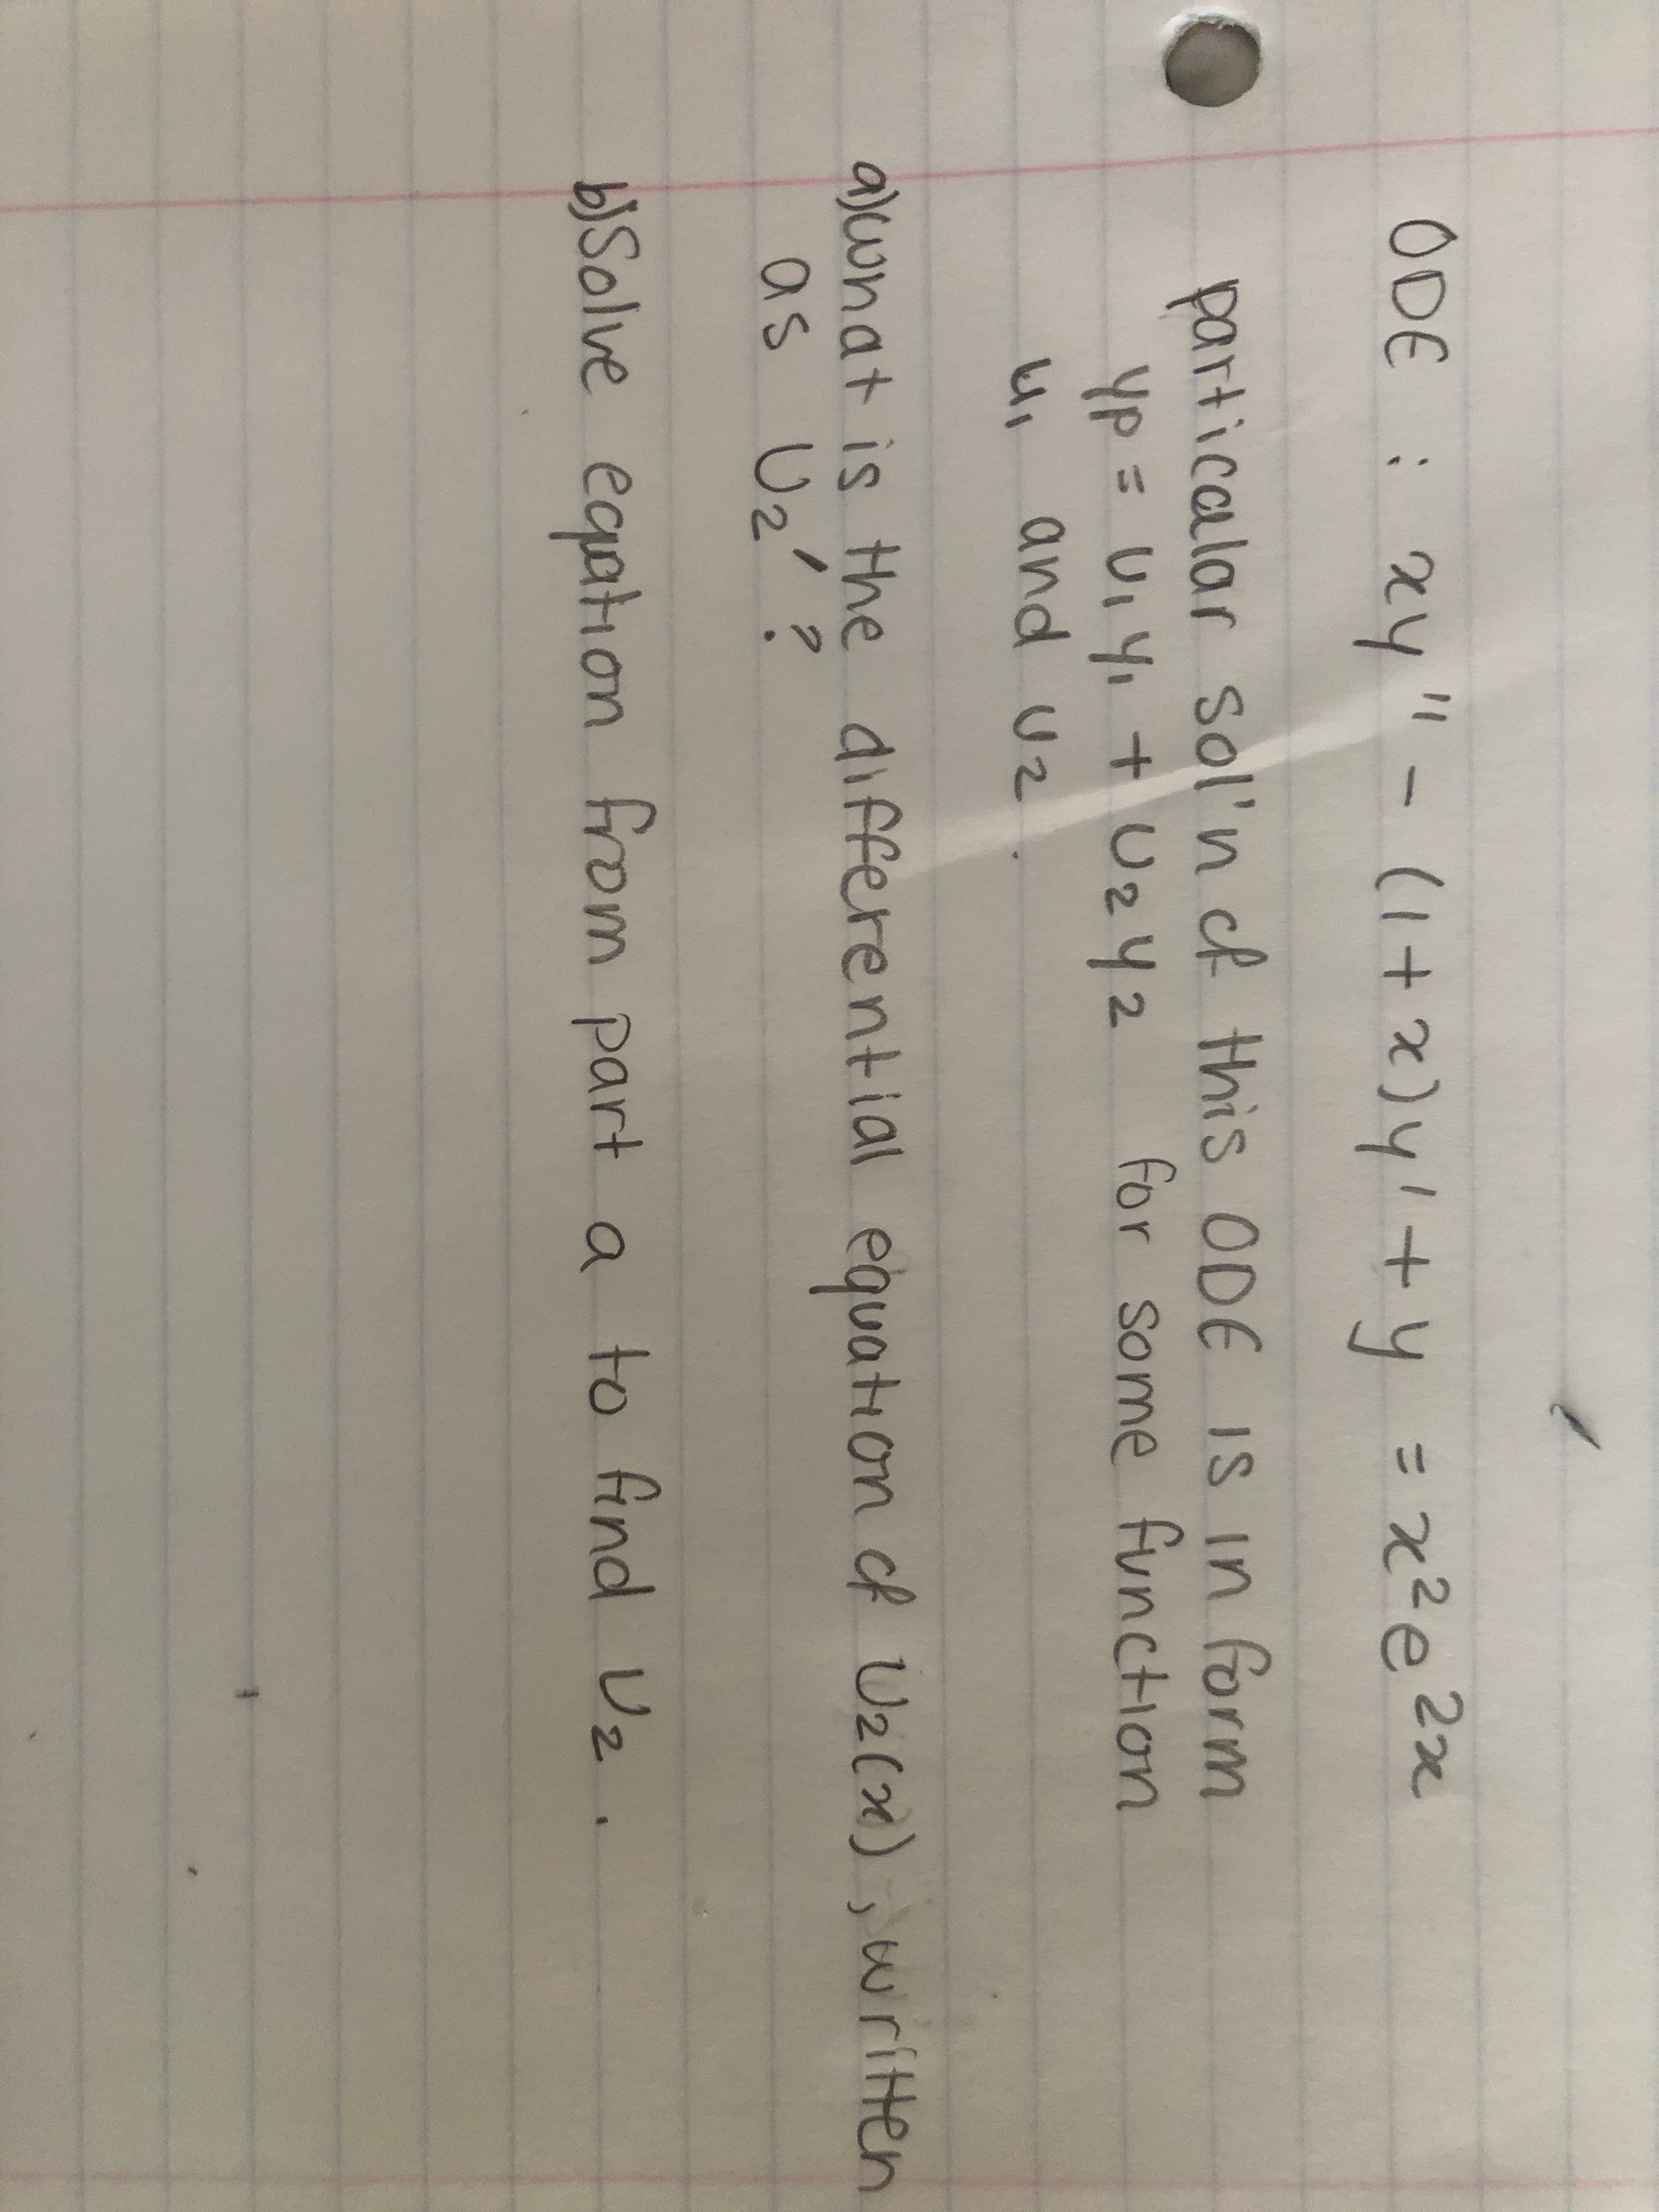 ODE : xy" - (1+x)y' + y = x²e²ˣ
particular sol'n of this ODE is in form
yp = u₁y₁ + u₂y₂ for some function
u₁ and u₂
a) what is the differential equation of u₂(x), written
as u₂'?
b) Solve equation from part a to find u₂.